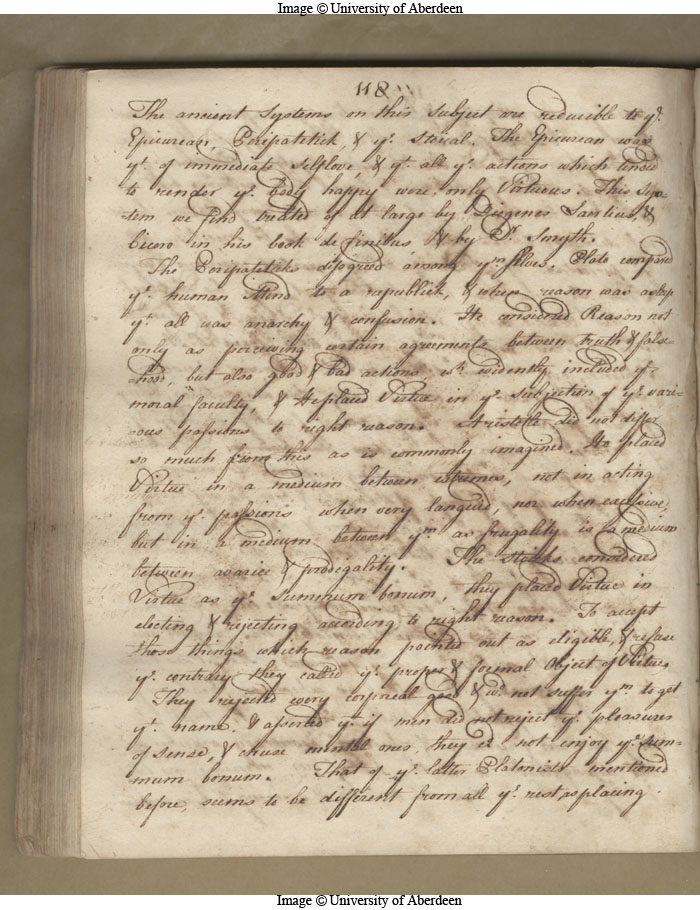 Image © University of Aberdeen
118
The ancient Systems on this subject are reducible to ye.
Epicurean, Peripatetick, & ye. stoical. The Epicurean was
yt. of immediate selflove, & yt. all ye. actions which tend
to render ye. body happy were only Virtuous. This Sys-
tem we find treated of at large by Diogenes Laertius, &
Cicero in his book de finibus & by Dr. Smyth.
The Peripateticks disagreed among ymselves. Plato compared
ye. human Mind to a republick, & when reason was asleep
yt. all was anarchy & confusion. He considered Reason not
only as perceiving certain agreements between truth & false-
-hood, but also good & bad actions, wh. evidently included ye.
moral faculty, & He placed Virtue in ye. subjection of ye. vari-
-ous passions to right reason. Aristotle did not differ
so much from this as is commonly imagined. He placed
Virtue in a medium between extremes, not in acting
from ye. passions when very languid, nor when excessive,
but in a medium between ym as frugality is a medium
between avarice & prodegality. The stoicks considered
Virtue as ye. Summum bonum, they placed Virtue in
electing & rejecting according to right reason. To accept
those things which reason pointed out as eligible, & refuse
ye. contrary they called ye. proper & formal Object of Virtue.
They rejected every corporeal good & wd. not suffer ym to get
yt. name, & asserted yt. if men did not reject ye. pleasures
of sense, & chuse mental ones, they cd. not enjoy ye. sum-
mum bonum. That of ye. latter Platonists mentioned
before, seems to be different from all ye. rest, as placing
Image © University of Aberdeen